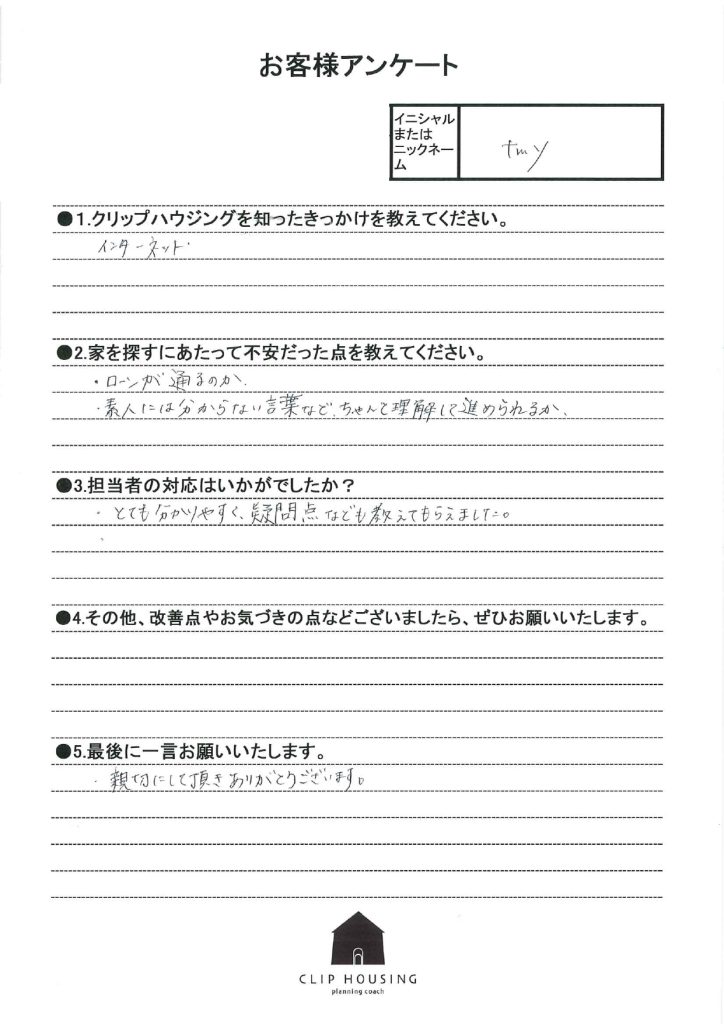 お客様アンケート
イニシャル
または
ニックネー
ム
tmy
●1.クリップハウジングを知ったきっかけを教えてください。
インターネット.
●2.家を探すにあたって不安だった点を教えてください。
・ローンが通るのか、
・素人には分からない言葉など、ちゃんと理解して進められるか、
●3.担当者の対応はいかがでしたか？
・とても分かりやすく、疑問点なども教えてもらえました。
●4.その他、改善点やお気づきの点などございましたら、ぜひお願いいたします。
●5.最後に一言お願いいたします。
・親切にして頂きありがとうございます。
CLIP HOUSING
planning coach